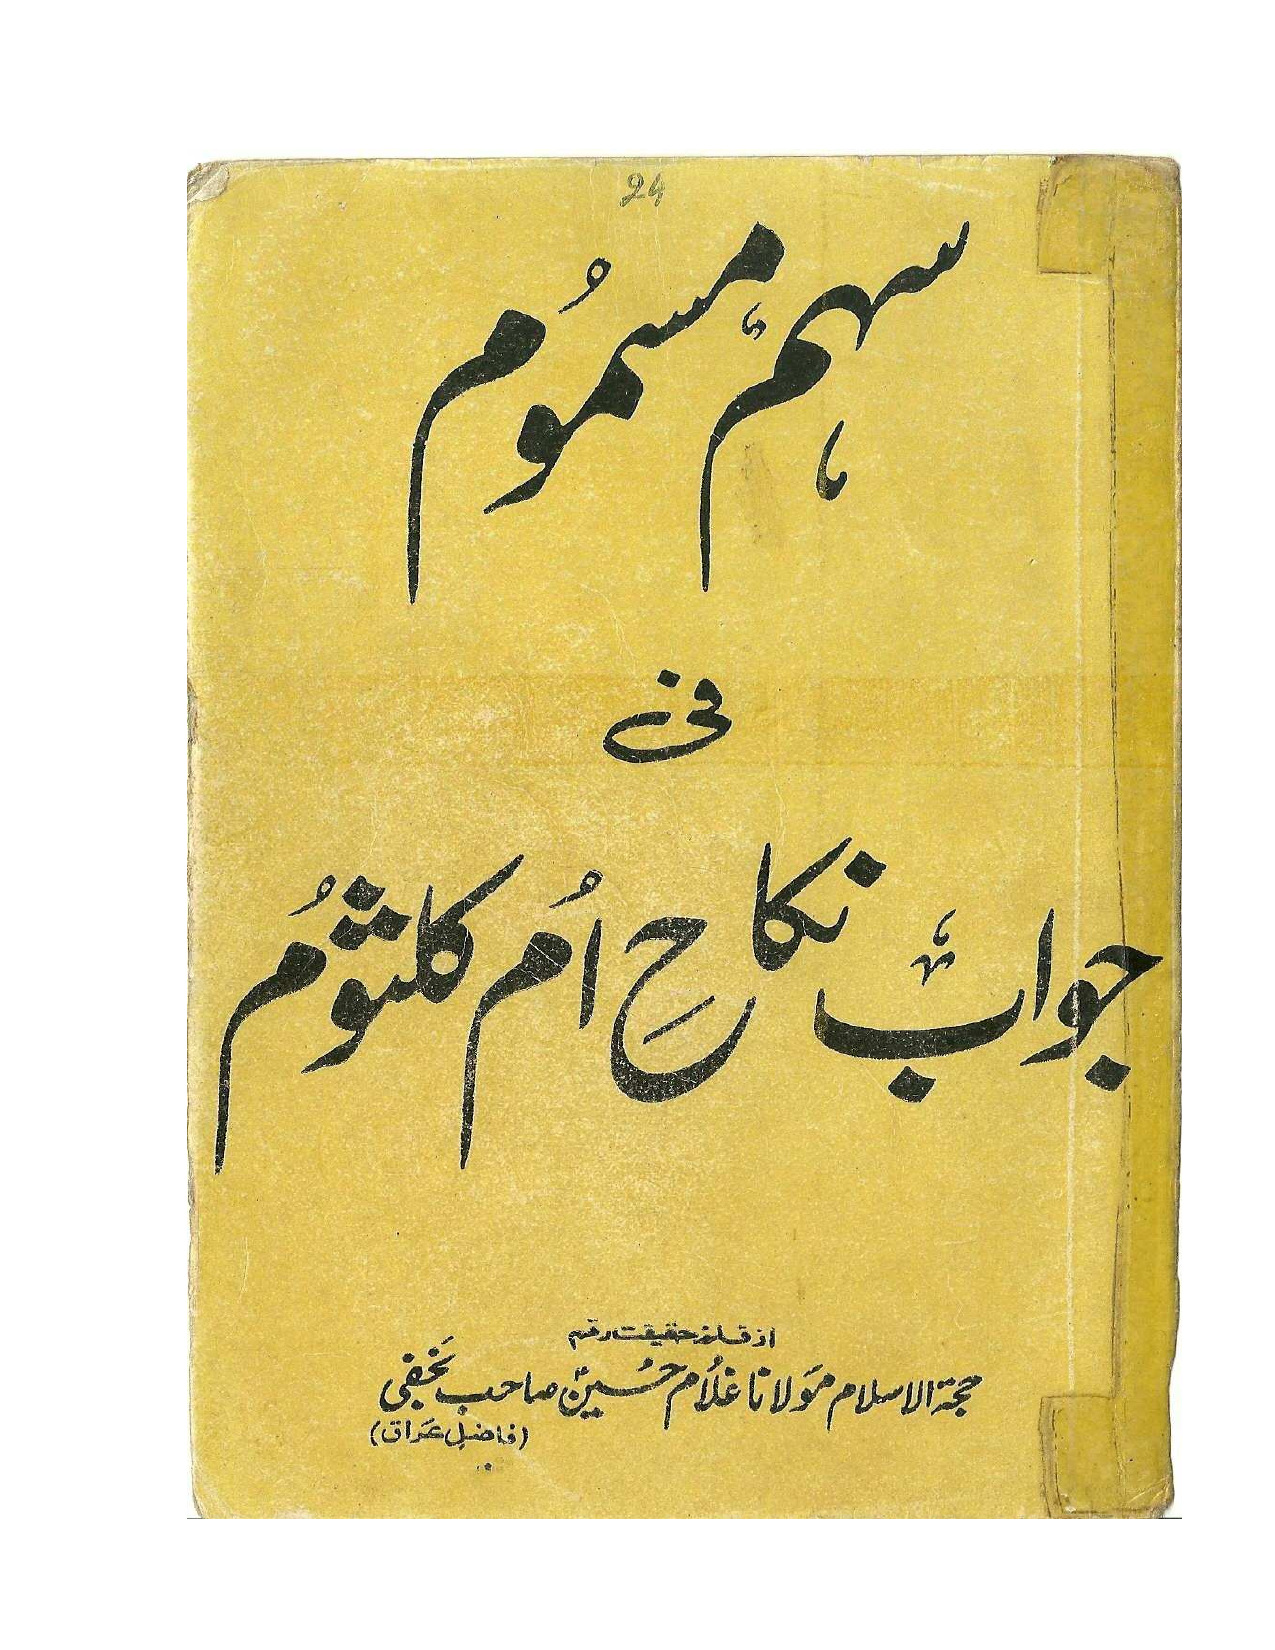 24
سہم مسموُم
فی
جواب نکاحِ اُم کلثوُم
از قلم حقیقت رقم
حجۃ الاسلام مَولانا غلُام حسُین صاحب نجَفی
(فاضلِ عَراق)